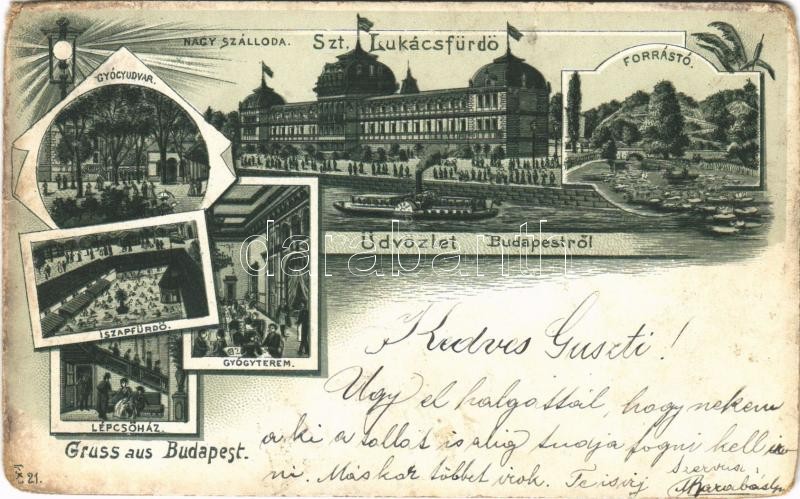 NAGY SZÁLLODA. Szt. Lukácsfürdö
FORRÁSTÓ.
GYÓGYUDVAR.
darabanth
Üdvözlet Budapestről
ISZAPFÜRDŐ.
GYÓGYTEREM.
LÉPCSŐHÁZ.
Gruss aus Budapest.
21.
Kedves Guszti!
Úgy el halgattál, hogy nekem
a ki a tollat is alig tudja fogni kell
ni. Máskor többet irok. Te is irj
Szervusz